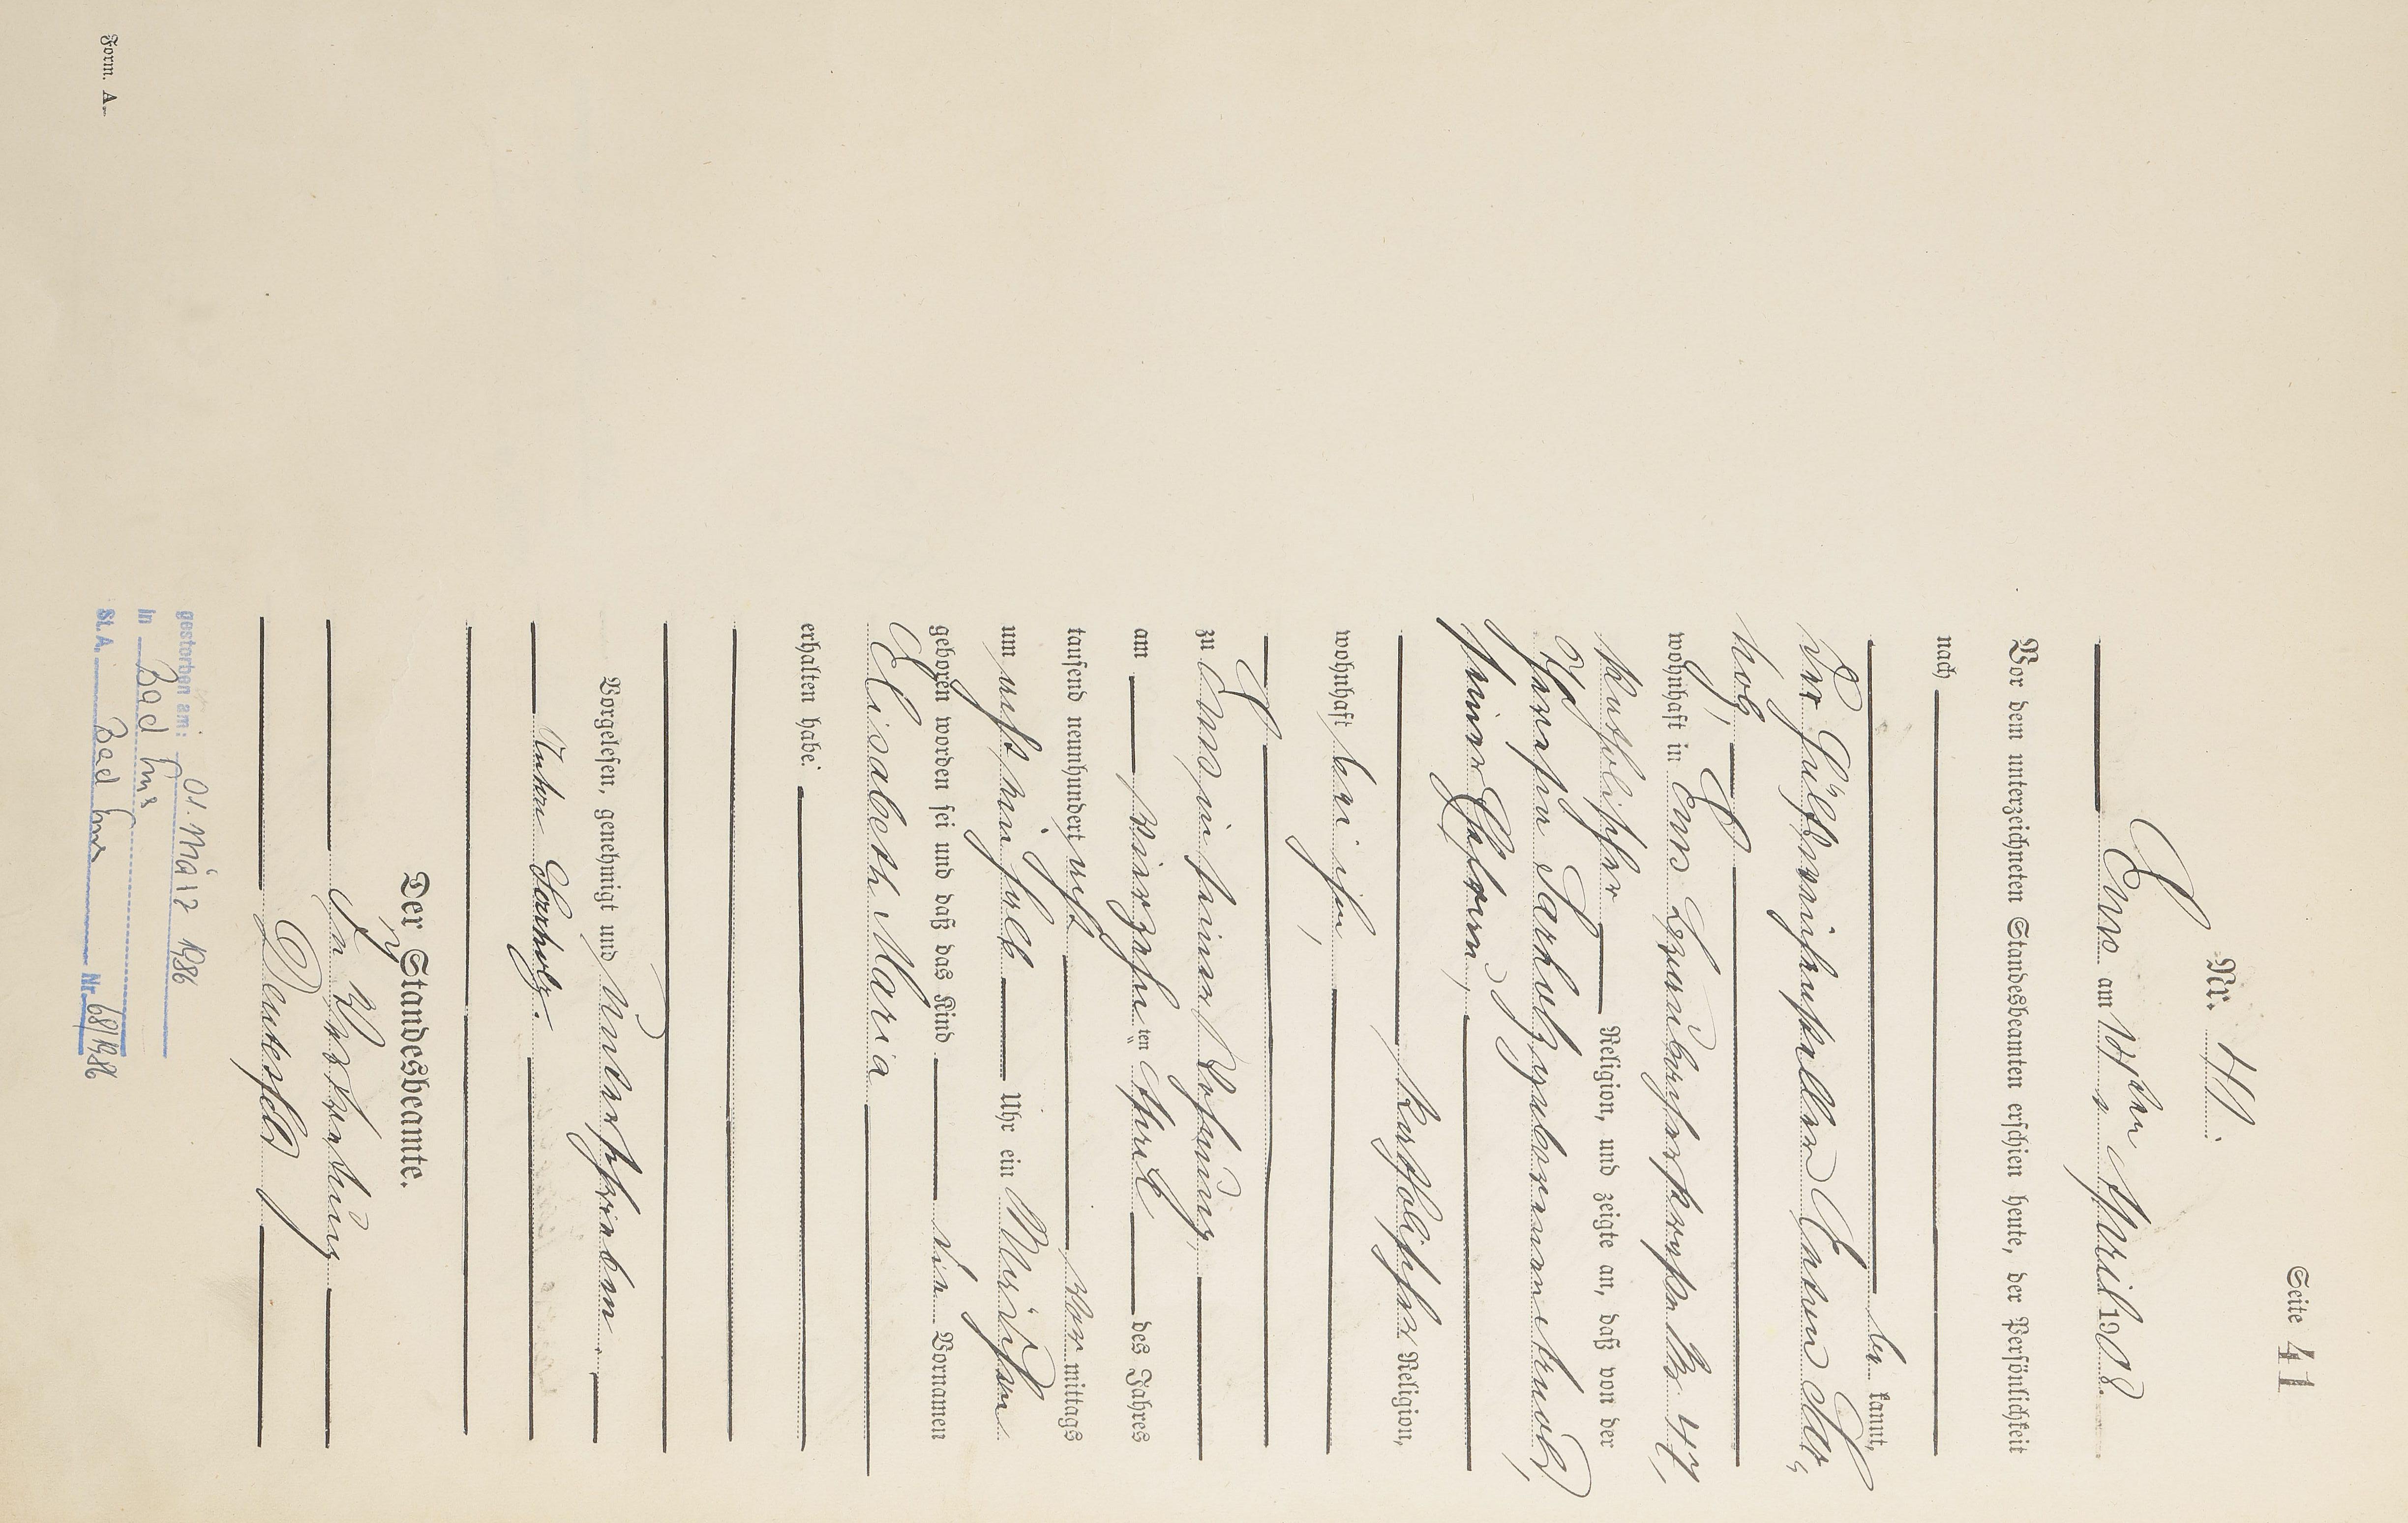 Seite 41
Nr. 41.
Ems am 14ten April 1908.
Vor dem unterzeichneten Standesbeamten erschien heute, der Persönlichkeit
nach
be kannt,
der Hülfsweichensteller Anton Sar-
holz,
wohnhaft in Ems Nr 47,
katholischer Religion, und zeigte an, daß von der
Sarholz geborenen
seiner Ehefrau,
katholischer Religion,
wohnhaft bei ihm,
zu Ems in seiner Wohnung,
am vierzehn ten April des Jahres
tausend neunhundert acht vor mittags
um acht ein halb Uhr ein Mädchen
geboren worden sei und daß das Kind die Vornamen
Elisabeth Maria
erhalten habe.
Vorgelesen, genehmigt und unterschrieben
Anton Sarholz.
Der Standesbeamte.
In Vertretung
gestorben am: 01. März 1986
in Bad Ems
St. A. Bad Ems Nr. 68/1986
Form. A.